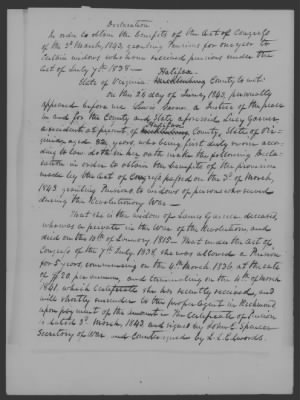 Declaration
In order to obtain the benefits of the Act of Congress
of the 3d March, 1843, granting Pensions for one year to
Certain widows who have received pensions under the
Act of July 7th 1838 —
Halifax
State of Virginia Mecklenburg County to wit:
On the 26 day of June, 1843, personally
appeared before me Lewis a Justice of the peace
in and for the County and State aforesaid Lucy Garner
a resident at present, of Halifax Mecklenburg County, State of Vir-
ginia, aged 82, years, who being first duly sworn accor-
ding to law doth on her oath make the following Decla-
ration in order to obtain the benefits of the provision
made by the Act of Congress passed on the 3d of March,
1843 granting Pensions to widows of persons who served
during the Revolutionary War —
That she is the widow of James Garner deceased,
who was a private in the War of the Revolution, and
died on the 10th of January 1815 — That under the Act of
Congress of the 7th July 1838 she was allowed a Pension
for 5 years, commencing on the 4th March 1836 at the rate
of $20 per annum, and terminating on the 4th of March
1841 which Certificate she has recently received, and
will shortly surrender to the proper agent in Richmond
upon payment of the amount. The Certificate of Pension
is dated 3d March, 1843 and signed by John C. Spencer
Secretary of War and Countersigned by J. L. Edwards.